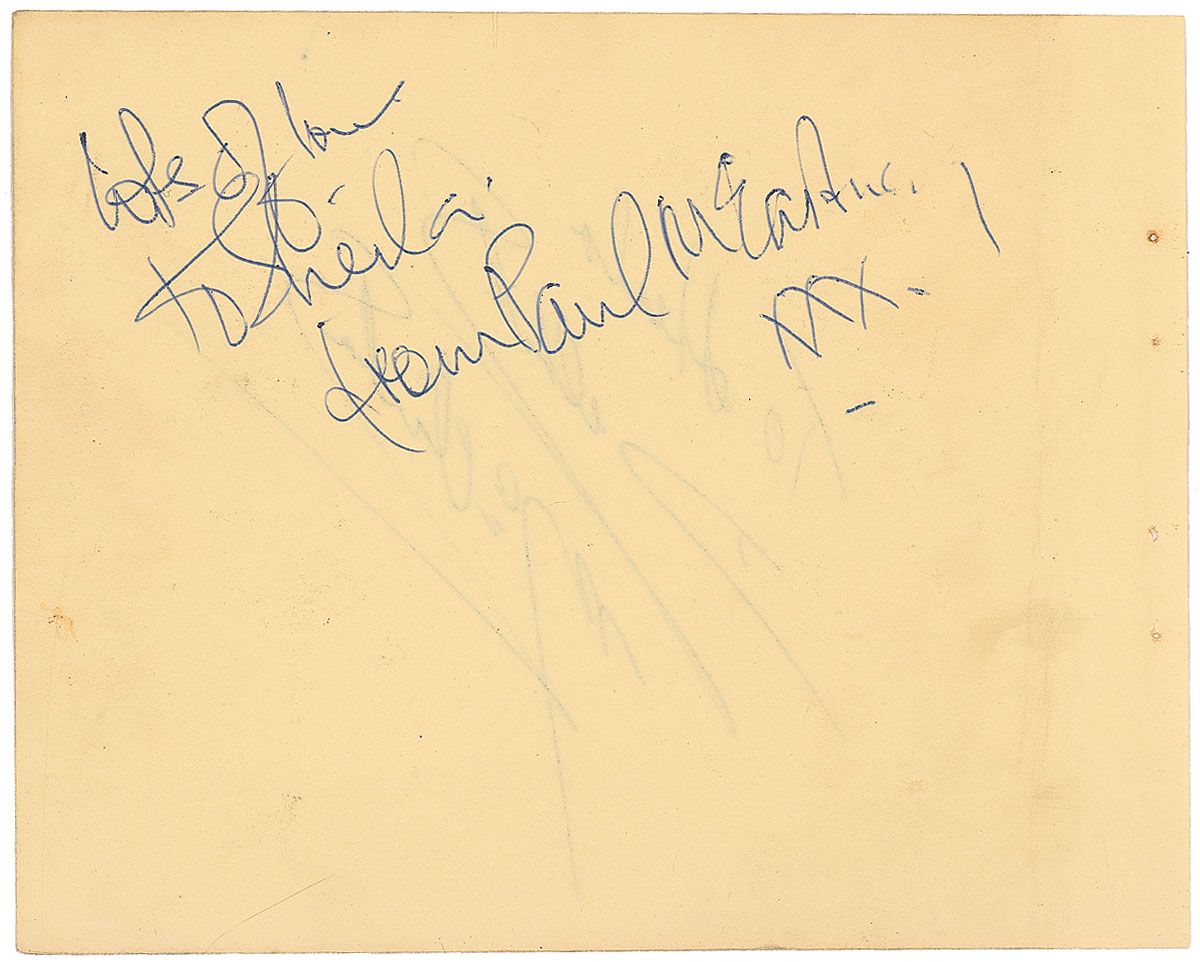 lots of love
to Sheila
from Paul McCartney
XXX